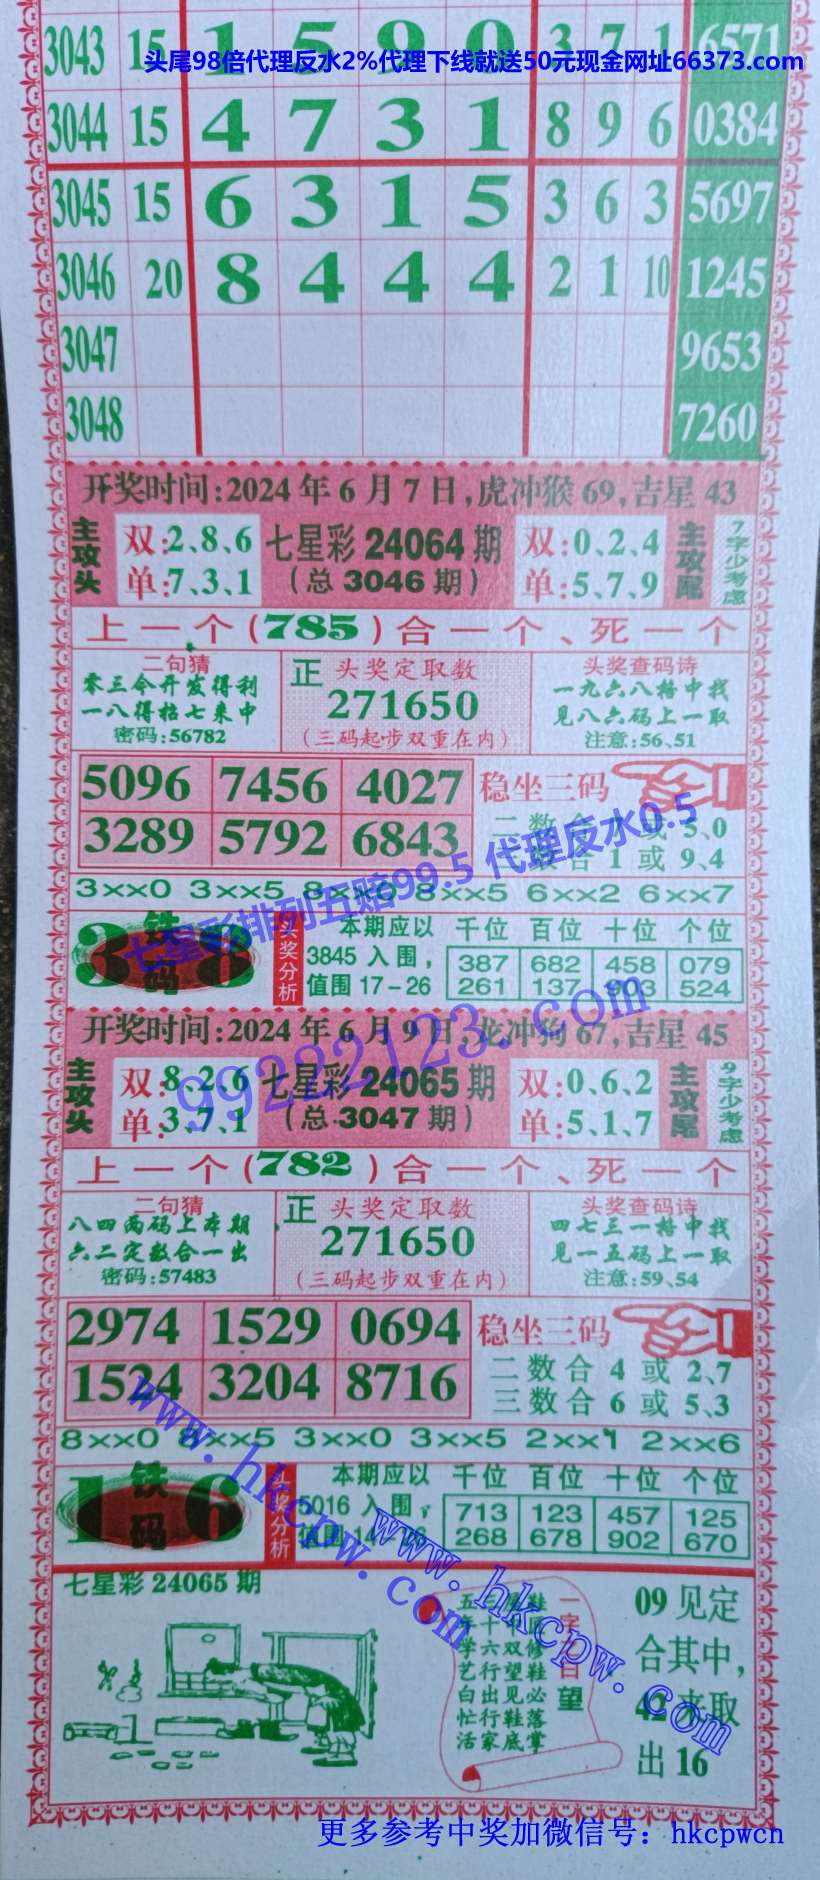 3043 15 1 5 9 0 3 7 1 6571
头尾98倍代理反水2%代理下线就送50元现金网址66373.com
3044 15 4 7 3 1 8 9 6 0384
3045 15 6 3 1 5 3 6 3 5697
3046 20 8 4 4 4 2 1 10 1245
3047 9653
3048 7260
开奖时间:2024年6月7日,虎冲猴69,吉星43
主攻头
双:2、8、6
单:7、3、1
七星彩24064期
(总3046期)
双:0、2、4
单:5、7、9
主攻尾
7字少考虑
上一个(785)合一个、死一个
二句猜
零三今开发得利
一八得枯七来中
密码:56782
正 头奖定取数
271650
(三码起步双重在内)
头奖查码诗
一九六八格中找
见八六码上一取
注意:56、51
5096 7456 4027
3289 5792 6843
稳坐三码
二数合 或5、0
数合1或9、4
七星彩排列五赔99.5 代理反水0.5
3××0 3××5 8××0 8××5 6××2 6××7
3铁码8
头奖分析
本期应以
3845入围,
值围17-26
千位 百位 十位 个位
387 682 458 079
261 137 903 524
99222123.com
开奖时间:2024年6月9日,龙冲狗67,吉星45
主攻头
双:8、2、6
单:3、7、1
七星彩24065期
(总3047期)
双:0、6、2
单:5、1、7
主攻尾
9字少考虑
上一个(782)合一个、死一个
二句猜
八四两码上本期
六二定数合一出
密码:57483
正 头奖定取数
271650
(三码起步双重在内)
头奖查码诗
四七三一格中找
见一五码上一取
注意:59、54
2974 1529 0694
1524 3204 8716
稳坐三码
二数合4或2、7
三数合6或5、3
8××0 8××5 3××0 3××5 2××1 2××6
1铁码6
头奖分析
本期应以
5016入围,
值围14-
千位 百位 十位 个位
713 123 457 125
268 678 902 670
www.hkcpw.com
www.hkcpw.com
七星彩24065期
一字 日望
鞋 修鞋必落掌
双望见鞋底
十六行出行家
五年学艺白忙活
09见定
合其中,
42来取
出16
更多参考中奖加微信号：hkcpwcn